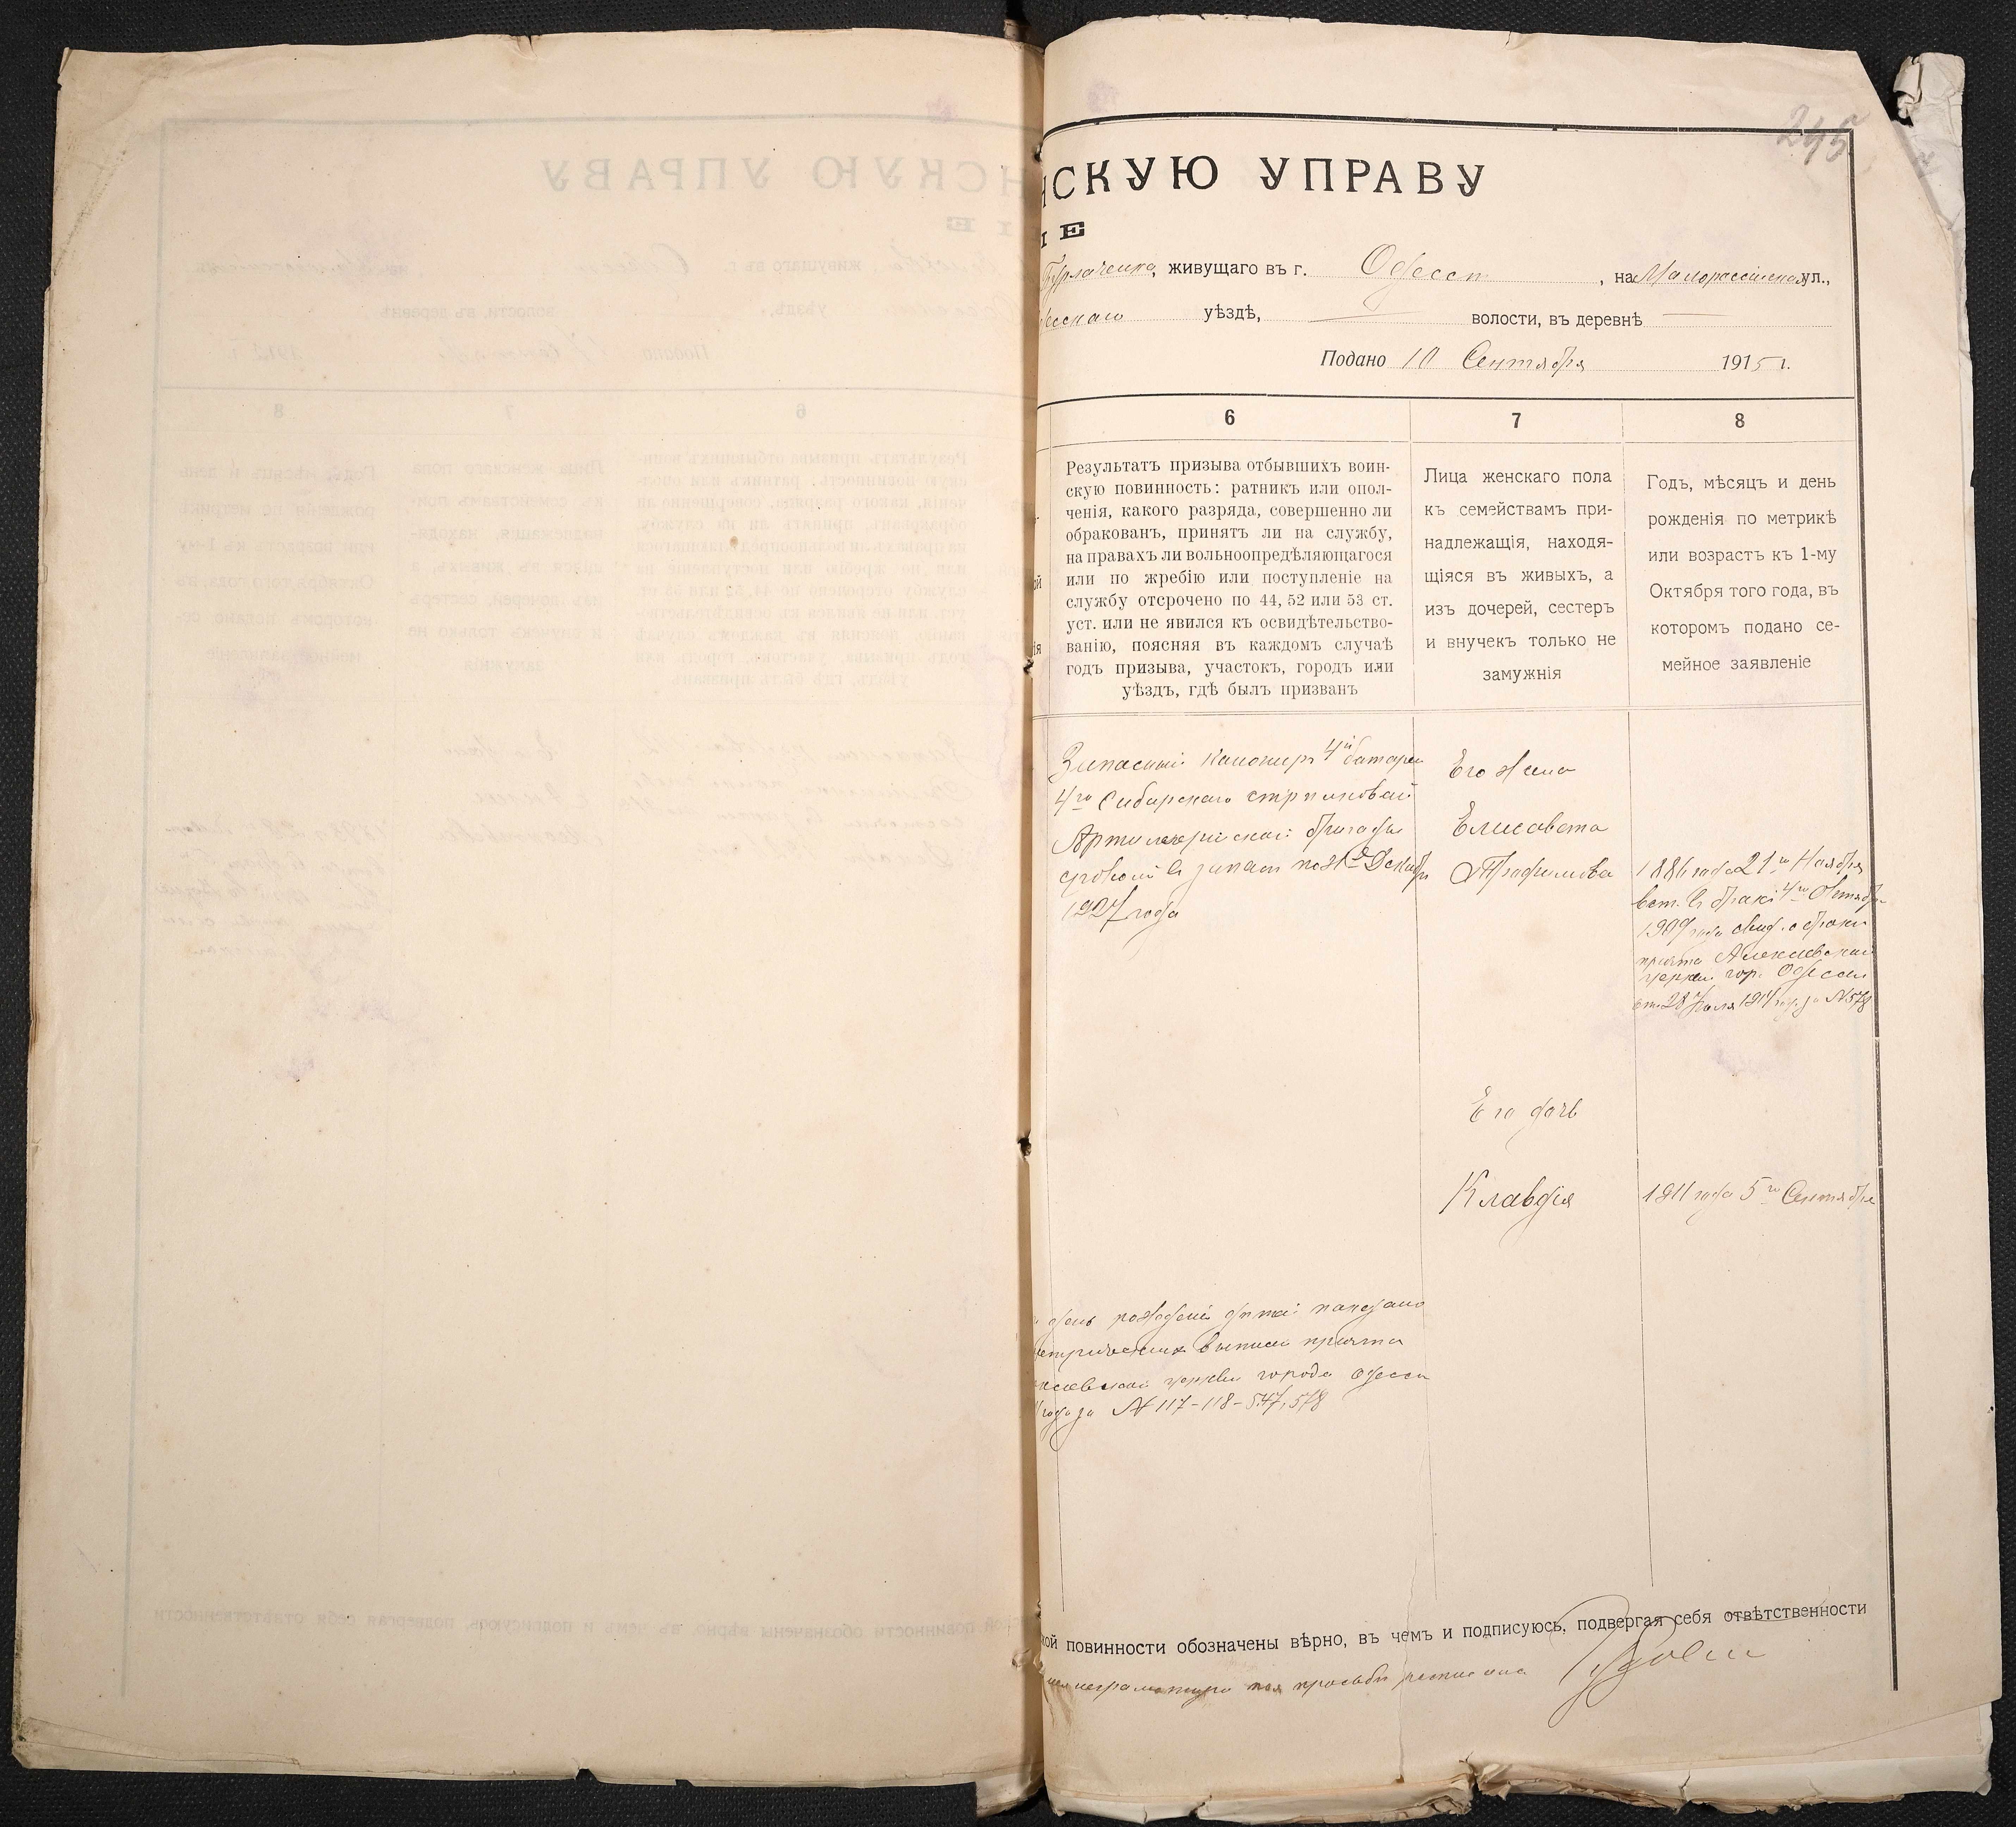 245
НСКУЮ УПРАВУ
ІЕ
Бурлаченко, живущаго въ г. Одессѣ, на Малороссійской ул.,
десскаго уѣздѣ, — волости, въ деревнѣ —
Подано 10 Сентября 1915 г.
6
7
8
Результатъ призыва отбывшихъ воин-
скую повинность: ратникъ или опол-
ченія, какого разряда, совершенно ли
обракованъ, принятъ ли на службу,
на правахъ ли вольноопредѣляющагося
или по жребію или поступленіе на
службу отсрочено по 44, 52 или 53 ст.
уст. или не явился къ освидѣтельство-
ванію, поясняя въ каждомъ случаѣ
годъ призыва, участокъ, городъ или
уѣздъ, гдѣ былъ призванъ
Лица женскаго пола
къ семействамъ при-
надлежащія, находя-
щіяся въ живыхъ, а
изъ дочерей, сестеръ
и внучекъ только не
замужнія
Годъ, мѣсяцъ и день
рожденія по метрикѣ
или возрастъ къ 1-му
Октября того года, въ
которомъ подано се-
мейное заявленіе
Запасный канониръ 4й батареи
4го Сибирскаго стрѣлковой
Артиллерійской бригады
въ запасъ по Декабря
1927 года
Его жена
Елисавета
Трофимова
1886 года 21го Ноября
вст. въ бракъ 4го Октября
1909 года свид. о бракѣ
причта Алексѣевской
церкви гор. Одессы
отъ 28 Іюля 1914 года за № 578
Его дочь
Клавдія
1911 года 5го Сентября
день рожденія дѣтей показано
метрическихъ выписей причта
ксѣевской церкви города Одессы
года за № 117-118-547, 578
кой повинности обозначены вѣрно, въ чемъ и подписуюсь, подвергая себя отвѣтственности
неграмотнаго его просьбѣ росписался